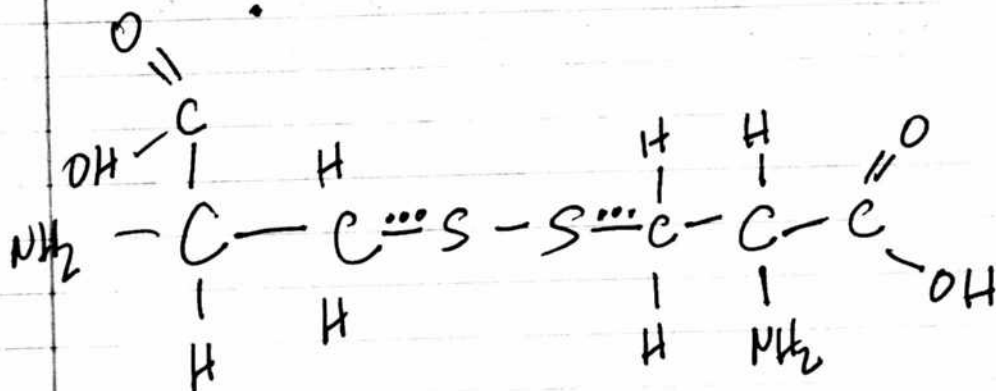 O
C
OH H H H O
NH₂ C C S S C C C
OH
H H H NH₂